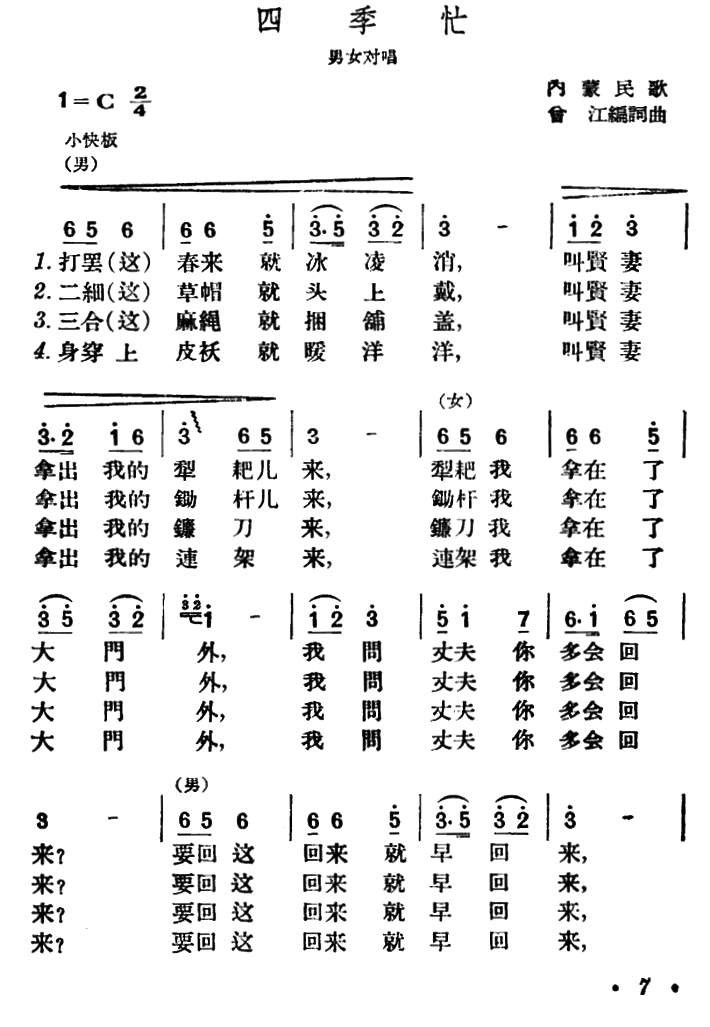 四季忙
男女对唱
1=C 2/4
内蒙民歌
曾 江編詞曲
小快板
(男)
6 5 6 | 6 6 5̇ | 3̇·5̇ 3̇ 2̇ | 3̇ - | 1̇ 2̇ 3̇ |
1.打罢(这) 春来 就 冰 凌 消, 叫賢妻
2.二細(这) 草帽 就 头 上 戴, 叫賢妻
3.三合(这) 麻繩 就 捆 舖 盖, 叫賢妻
4.身穿上 皮袄 就 暖 洋 洋, 叫賢妻
(女)
3̇·2̇ 1̇ 6 | 3̇ 6 5 | 3 - | 6 5 6 | 6 6 5̇ |
拿出 我的 犁 耙儿 来, 犁耙我 拿在 了
拿出 我的 鋤 杆儿 来, 鋤杆我 拿在 了
拿出 我的 鐮 刀 来, 鐮刀我 拿在 了
拿出 我的 連 架 来, 連架我 拿在 了
3̇ 5̇ 3̇ 2̇ | 3̇2̇ 1̇ - | 1̇ 2̇ 3̇ | 5̇ 1̇ 7 | 6·1̇ 6 5 |
大 門 外, 我 問 丈夫 你 多会 回
大 門 外, 我 問 丈夫 你 多会 回
大 門 外, 我 問 丈夫 你 多会 回
大 門 外, 我 問 丈夫 你 多会 回
(男)
3 - | 6 5 6 | 6 6 5̇ | 3̇·5̇ 3̇ 2̇ | 3̇ - |
来? 要回 这 回来 就 早 回 来,
来? 要回 这 回来 就 早 回 来,
来? 要回 这 回来 就 早 回 来,
来? 要回 这 回来 就 早 回 来,
· 7 ·